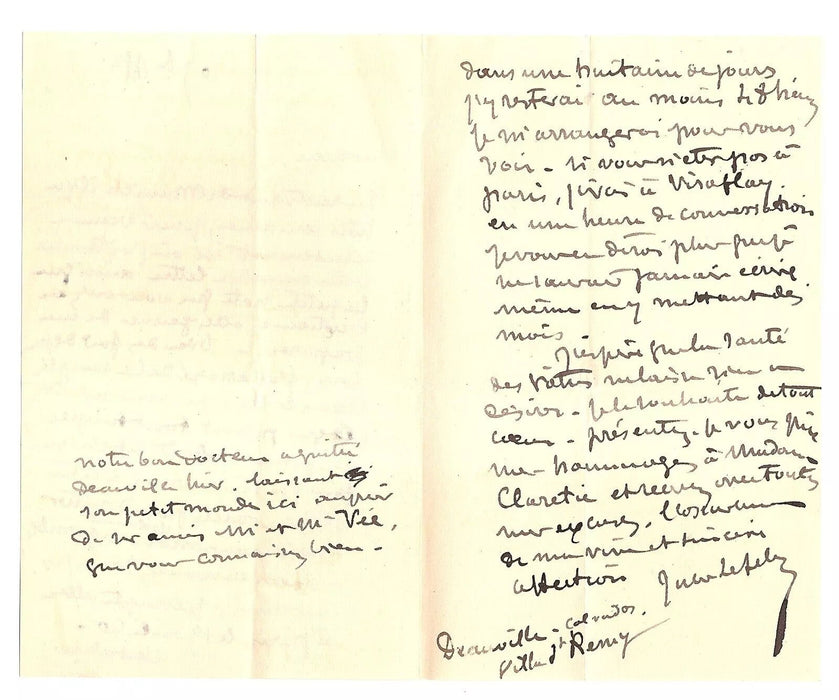 dans une huitaine de jours
j'y resterai au moins
je m'arrangerai pour vous
voir - si vous n'etes pas à
paris, j'irai à Viroflay.
en une heure de conversation
je vous en dirai plus que je
ne saurais jamais écrire
même en y mettant des
mois.
J'espère que la santé
des vôtres ne laisse rien à
désirer - je le souhaite de tout
coeur - présentez, je vous prie
mes hommages à Madame
Claretie et recevez avec toutes
mes excuses, l'assurance
de ma vive et sincère
affection Jules Lefebv
Deauville - Calvados.
Villa St Remy
notre bon docteur a quitté
Deauville hier. laissant
son petit monde ici auprès
de nos amis Mr et Me Vée,
que vous connaissez bien -